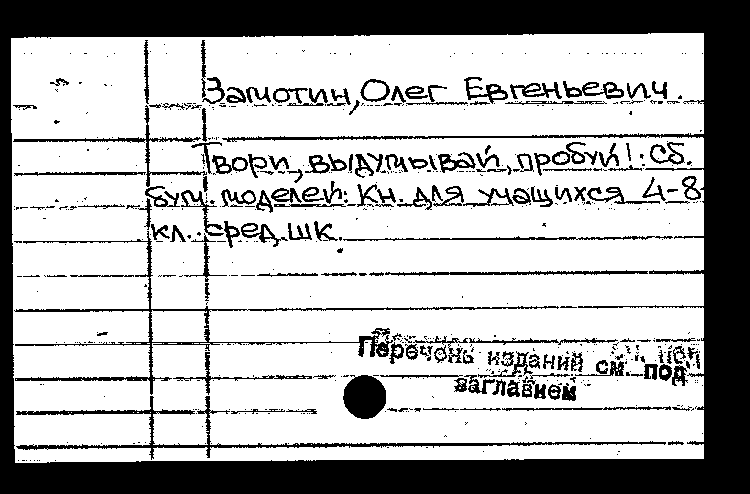 Замотин, Олег Евгеньевич.
Твори, выдумывай, пробуй!: Сб.
бум. моделей: Кн. для учащихся 4-8
кл. сред. шк.
Перечень изданий см. под
заглавием